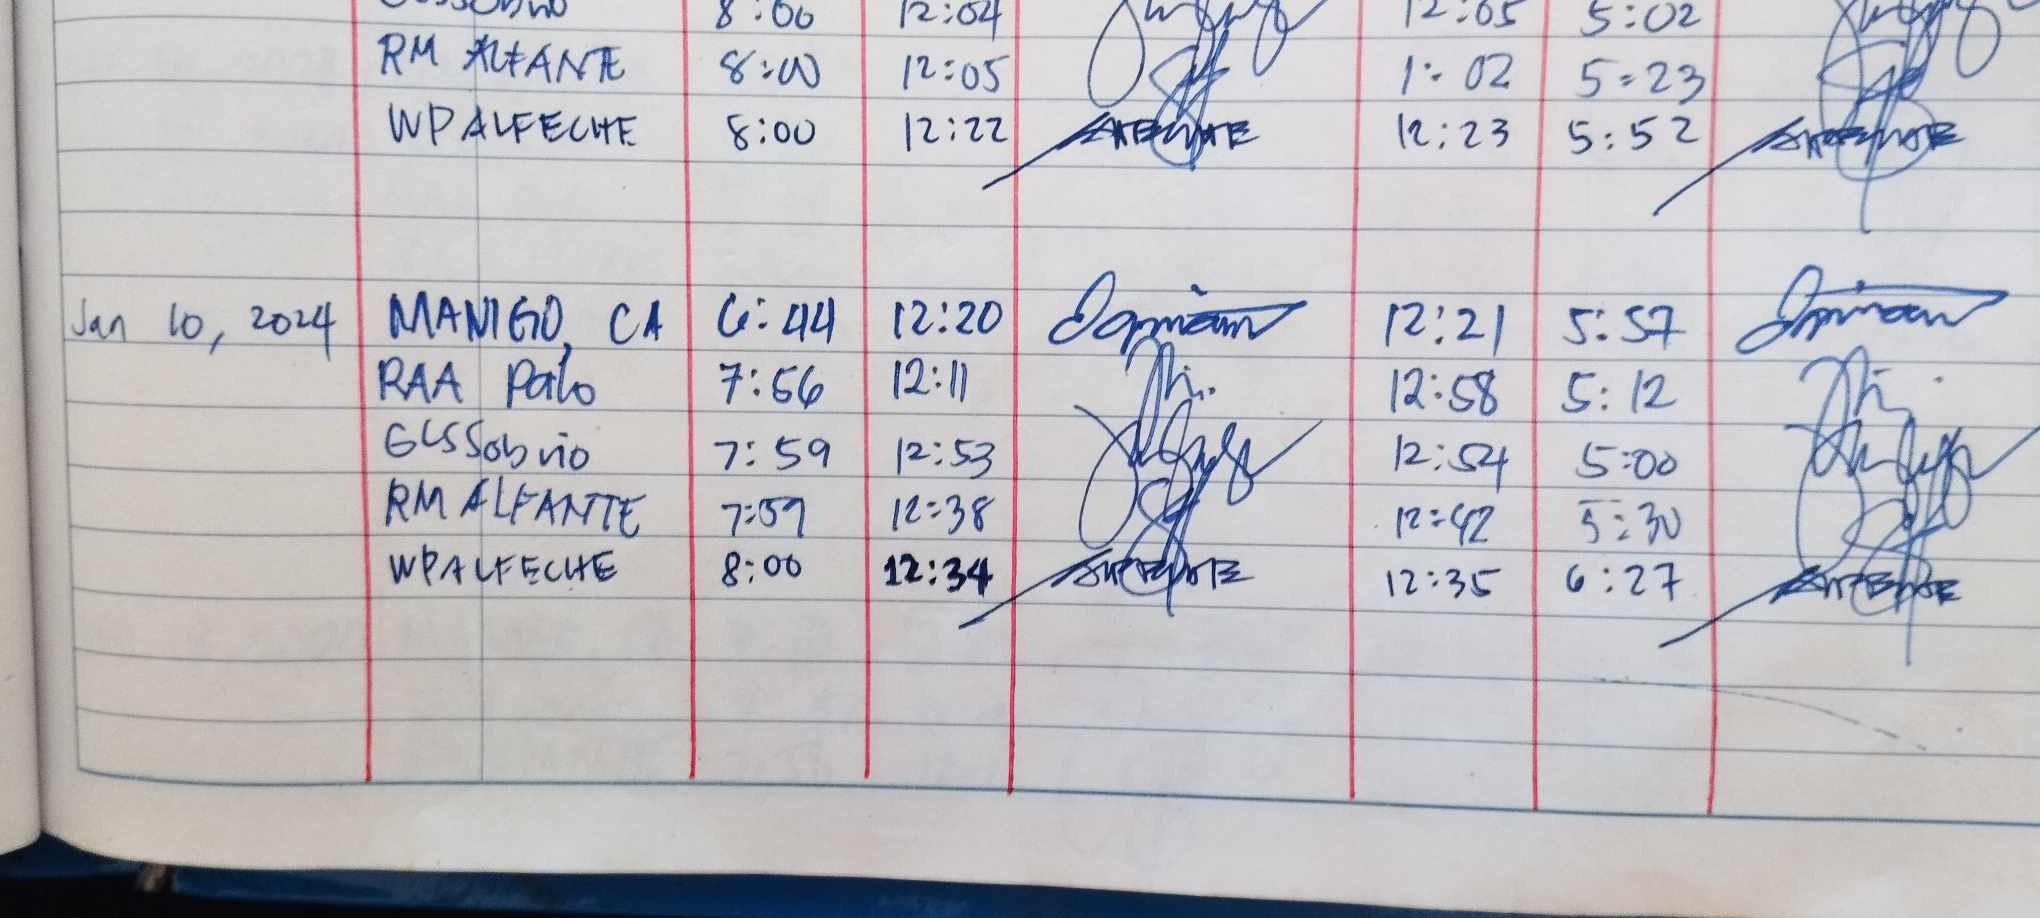 8:00 12:04 12:05 5:02
RM ALFANTE 8:00 12:05 1:02 5:23
WPALFECHE 8:00 12:22 ALFECHE 12:23 5:52 ALFECHE
Jan 10, 2024 MANIGO, CA 6:44 12:20 12:21 5:57
RAA Palo 7:56 12:11 12:58 5:12
GLSSobrio 7:59 12:53 12:54 5:00
RM ALFANTE 7:59 12:38 12:42 5:30
WPALFECHE 8:00 12:34 ALFECHE 12:35 6:27 ALFECHE